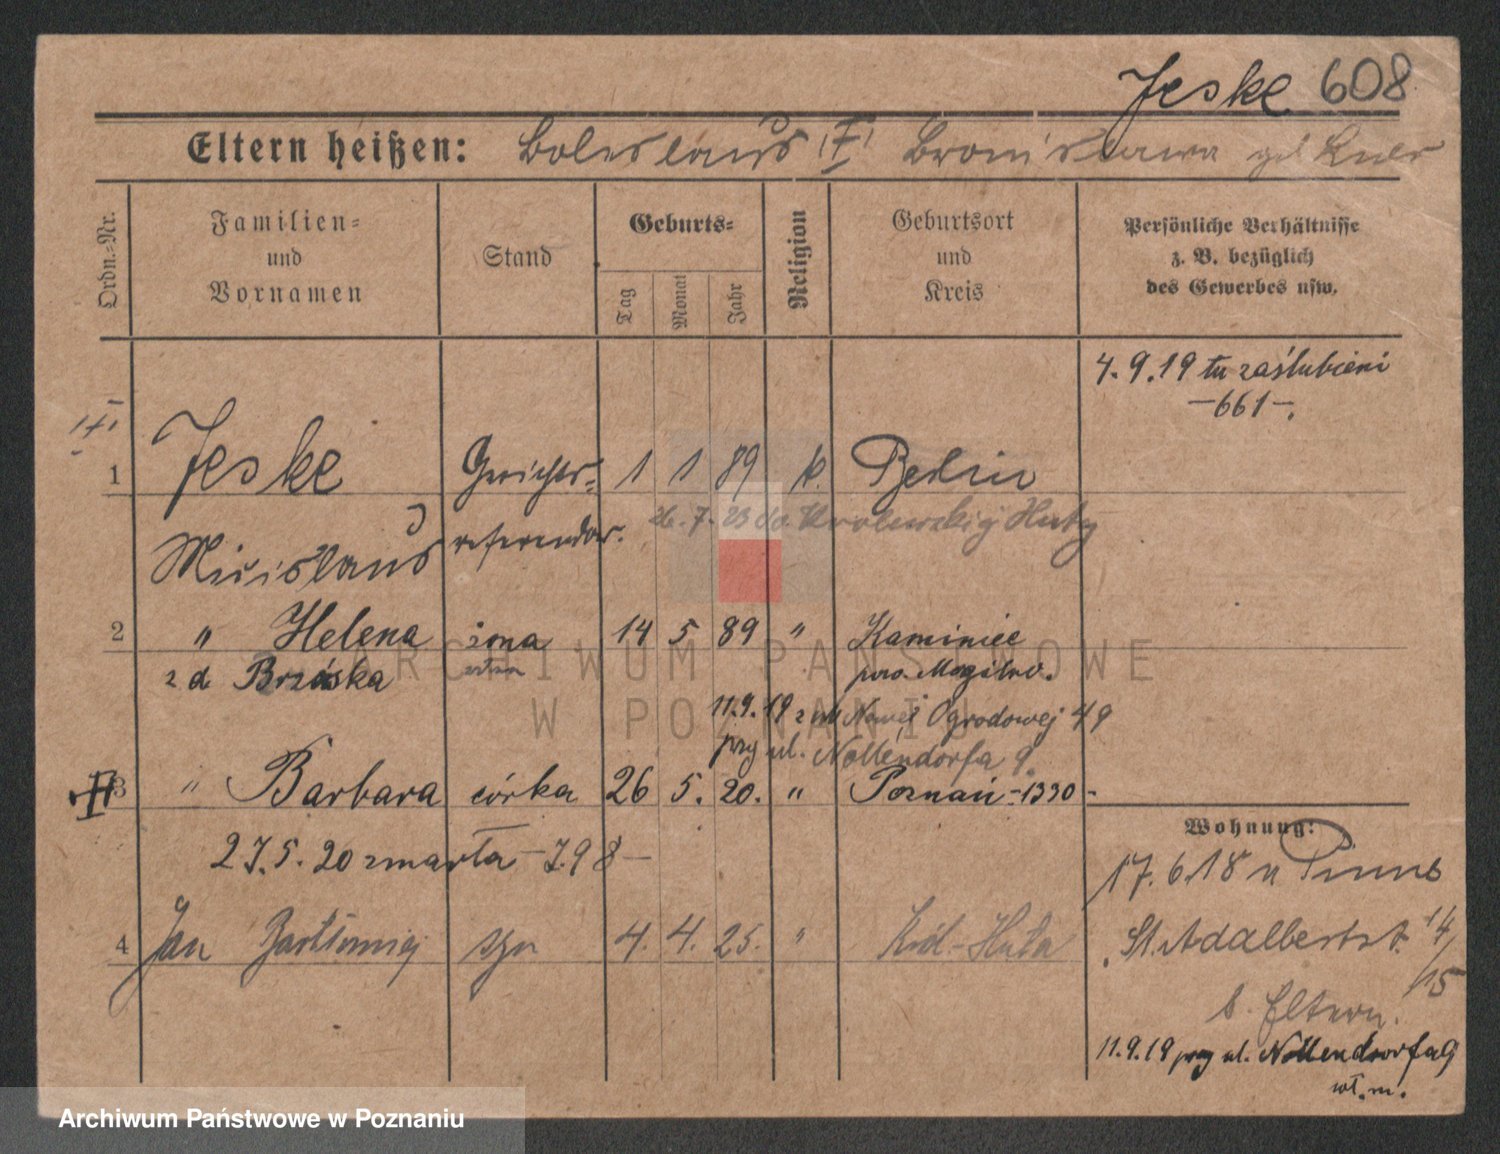 Jeske 608
Eltern heißen: Boleslaus (†) Bronisława
Ordn.-Nr.
Familien- und Vornamen
Stand
Geburts-
Tag
Monat
Jahr
Religion
Geburtsort und Kreis
Persönliche Verhältnisse
z. B. bezüglich
des Gewerbes usw.
4. 9. 19 tu zaślubieni
-661-.
1 Jeske Gerichts- 1 1 89 k. Berlin
26. 7. 23 do Królewskiej Huty
Miecislaus referendar.
2 " Helena żona 14 5 89 " Kaminiec
z d. Brzóska pow. Mogilno.
11.9.19 z ul. Nowej Ogrodowej 49
przy ul. Nollendorfa 9.
3 " Barbara córka 26 5. 20. " Poznań -1330-
27. 5. 20 zmarła -798-
4 Jan Bartłomiej syn 4. 4. 25. " Król.-Huta
Wohnung:
17. 6. 18 n Pinne
St. Adalbertstr. 14/15
b. Eltern.
11.9.19 przy ul. Nollendorfa 9
wł. m.
ARCHIWUM PAŃSTWOWE
W POZNANIU
Archiwum Państwowe w Poznaniu